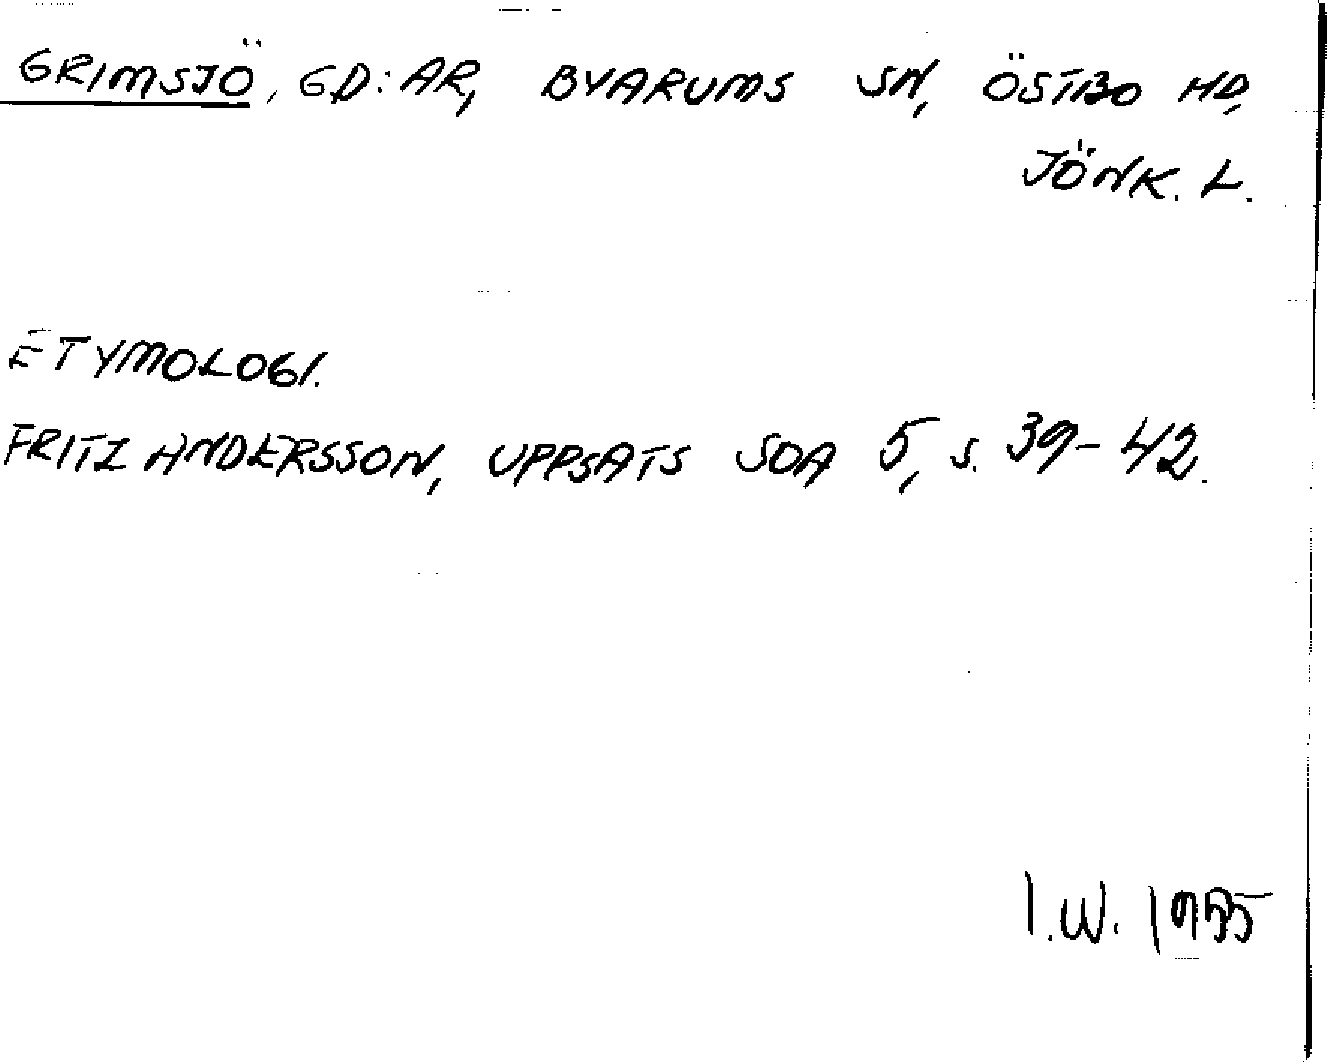 GRIMSJÖ, GD:AR, BYARUMS SN, ÖSTBO HD,
JÖNK. L.
ETYMOLOGI.
FRITZ ANDERSSON, UPPSATS SOA 5, s. 39-42.
I.W. 1955